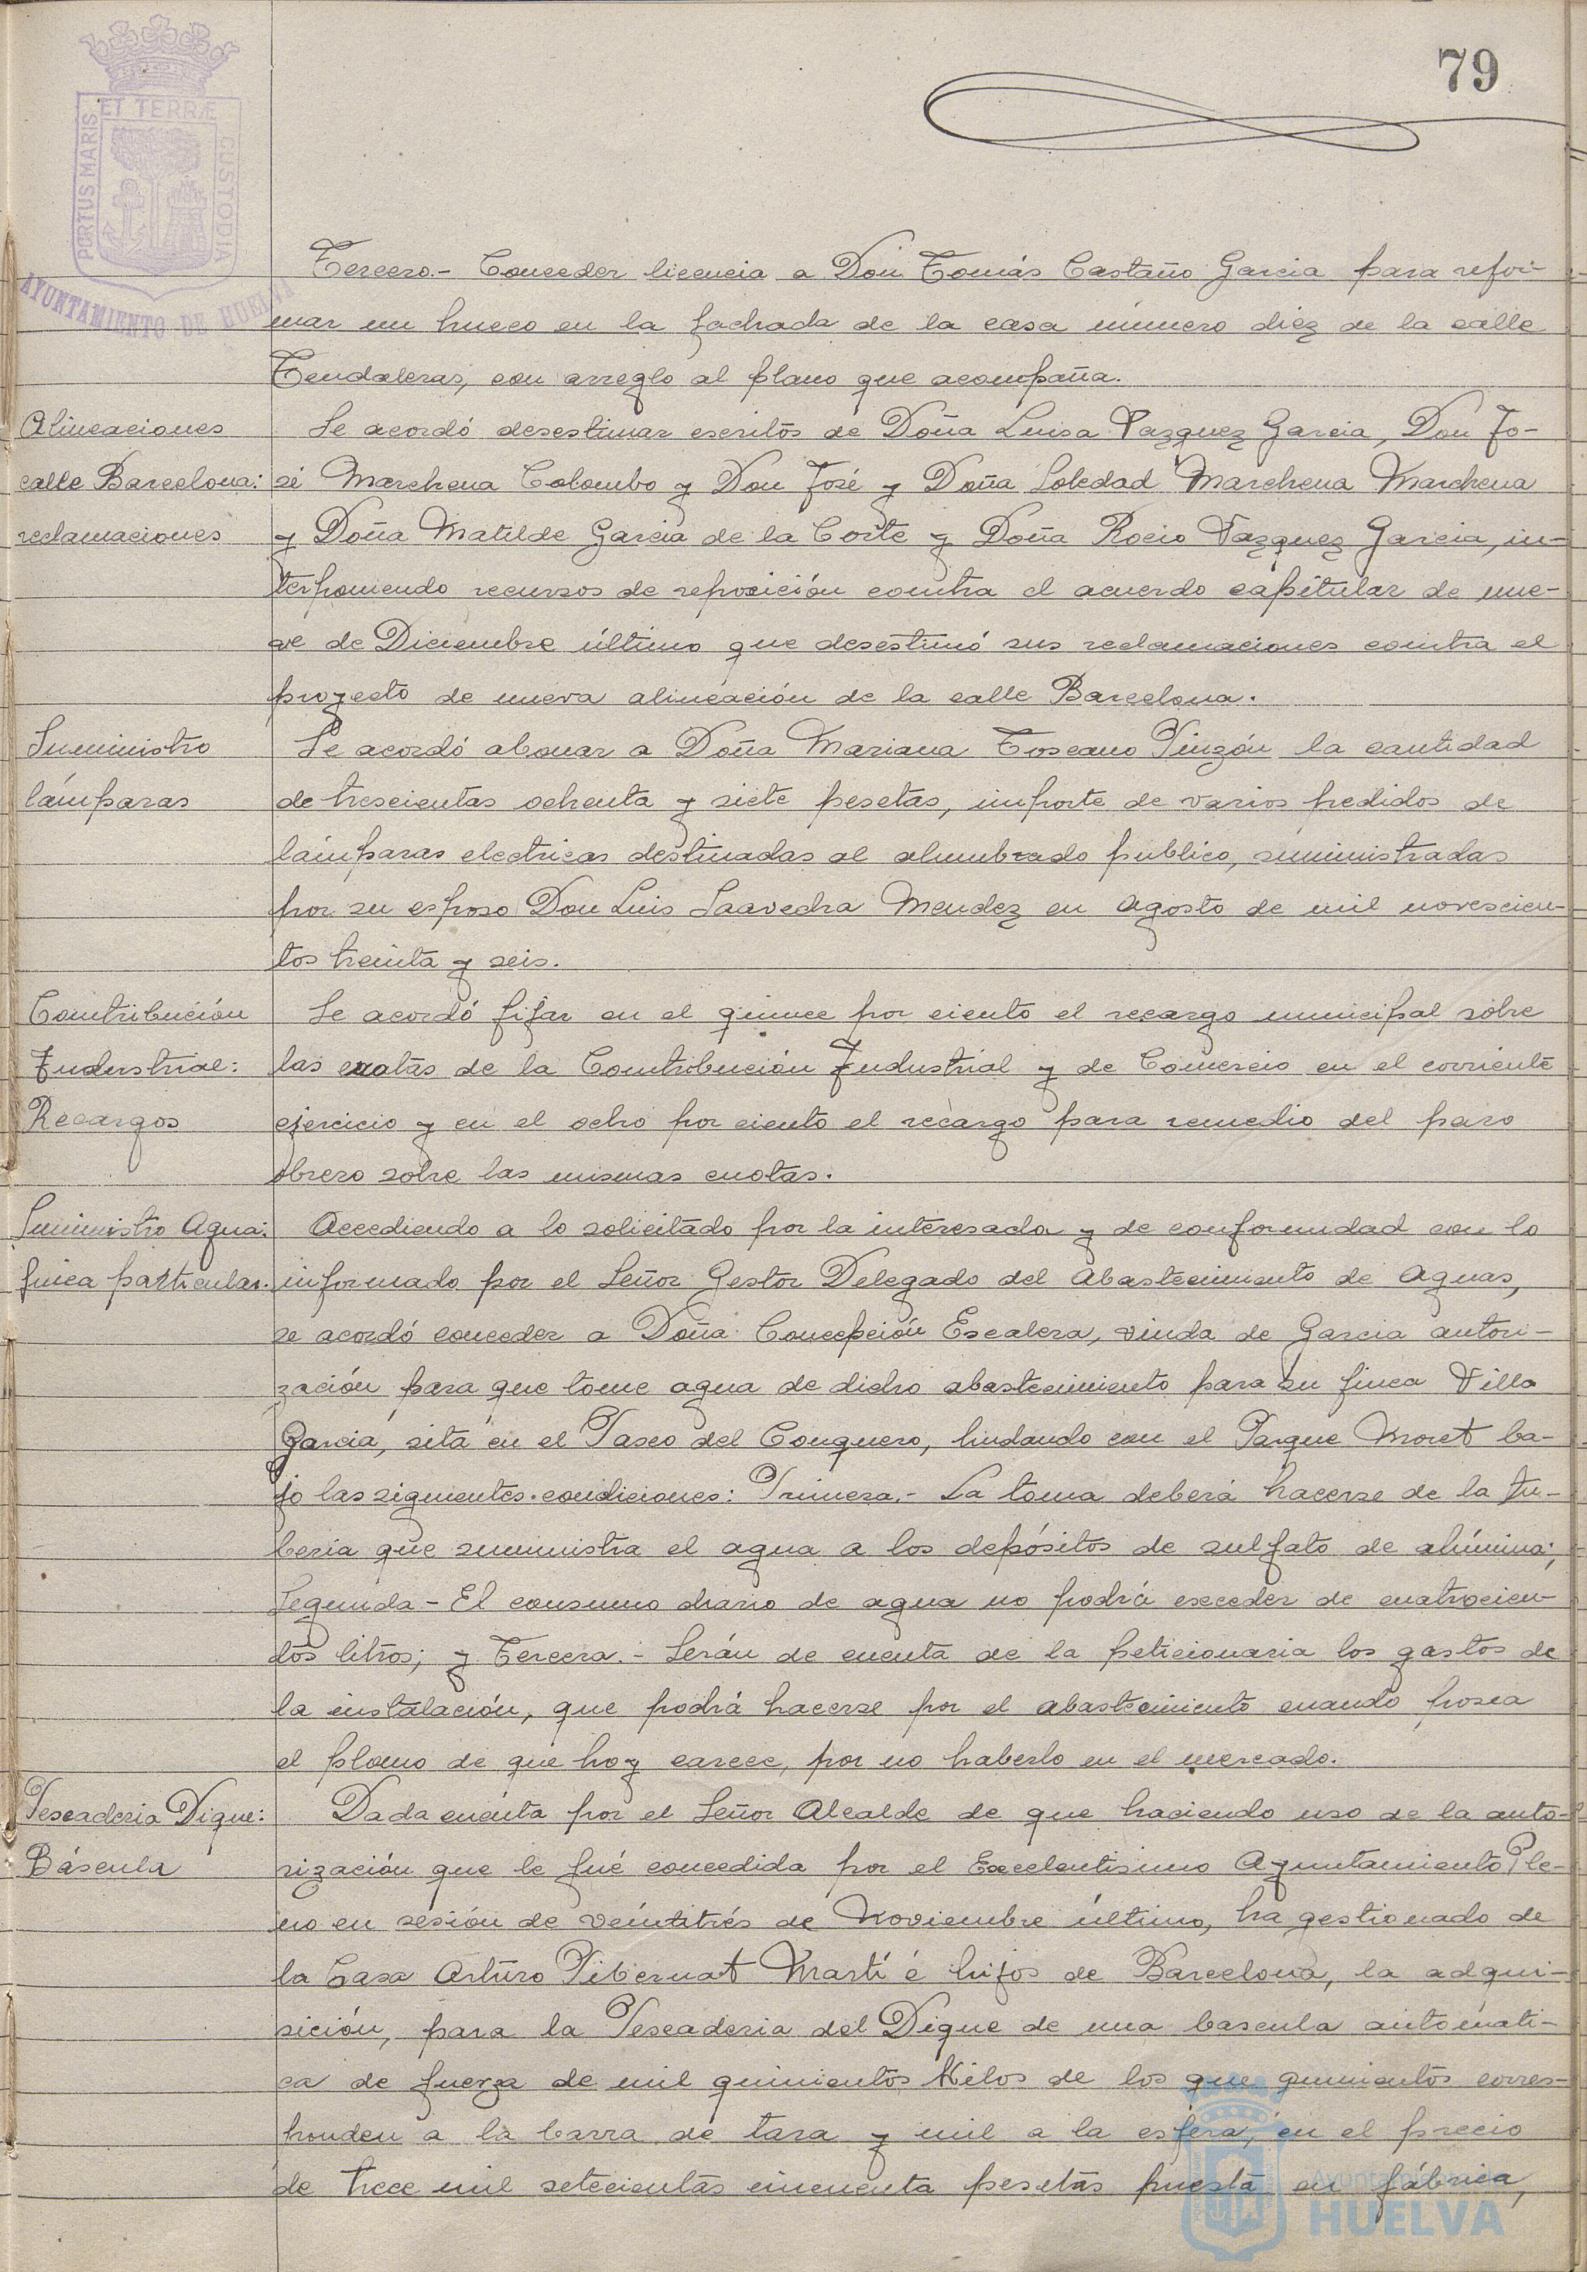 79
ET TERRÆ
PORTUS MARIS
CUSTODIA
AYUNTAMIENTO DE HUELVA
Tercero.- Conceder licencia a Don Tomás Castaño Garcia para refor-
mar un hueco en la fachada de la casa número diez de la calle
Tendaleras, con arreglo al plano que acompaña.
Alineaciones
calle Barcelona:
reclamaciones
Se acordó desestimar escritos de Doña Luisa Vazquez Garcia, Don Jo-
sé Marchena Colombo y Don José y Doña Soledad Marchena Marchena
y Doña Matilde Garcia de la Corte y Doña Rocio Vazquez Garcia, in-
terponiendo recursos de reposición contra el acuerdo capitular de nue-
ve de Diciembre último que desestimó sus reclamaciones contra el
proyecto de nueva alineación de la calle Barcelona.
Suministro
lámparas
Se acordó abonar a Doña Mariana Toscano Pinzón la cantidad
de trescientas ochenta y siete pesetas, importe de varios pedidos de
lámparas electricas destinadas al alumbrado publico, suministradas
por su esposo Don Luis Saavedra Mendez en Agosto de mil novescien-
tos treinta y seis.
Contribución
Industrial:
Recargos
Se acordó fijar en el quince por ciento el recargo municipal sobre
las cuotas de la Contribución Industrial y de Comercio en el corriente
ejercicio y en el ocho por ciento el recargo para remedio del paro
obrero sobre las mismas cuotas.
Suministro Agua:
finca particular.
Accediendo a lo solicitado por la interesada y de conformidad con lo
informado por el Señor Gestor Delegado del Abastecimiento de Aguas,
se acordó conceder a Doña Concepción Escalera, viuda de Garcia autori-
zación para que tome agua de dicho abastecimiento para su finca Villa
Garcia, sita en el Paseo del Conquero, lindando con el Parque Moret ba-
jo las siguientes condiciones: Primera.- La toma deberá hacerse de la tu-
beria que suministra el agua a los depósitos de sulfato de alúmina;
Segunda- El consumo diario de agua no podrá exceder de cuatrocien-
tos litros; y Tercera.- Serán de cuenta de la peticionaria los gastos de
la instalación, que podrá hacerse por el abastecimiento cuando posea
el plomo de que hoy carece, por no haberlo en el mercado.
Pescaderia Dique:
Báscula
Dada cuenta por el Señor Alcalde de que haciendo uso de la auto-
rización que le fué concedida por el Excelentisimo Ayuntamiento Ple-
no en sesión de veintitrés de Noviembre último, ha gestionado de
la Casa Arturo Pibernat Martí é hijos de Barcelona, la adqui-
sición, para la Pescaderia del Dique de una bascula automáti-
ca de fuerza de mil quinientos Kilos de los que quinientos corres-
ponden a la barra de tara y mil a la esfera, en el precio
de trece mil setecientas cincuenta pesetas puesta en fábrica,
Ayuntamiento de
HUELVA